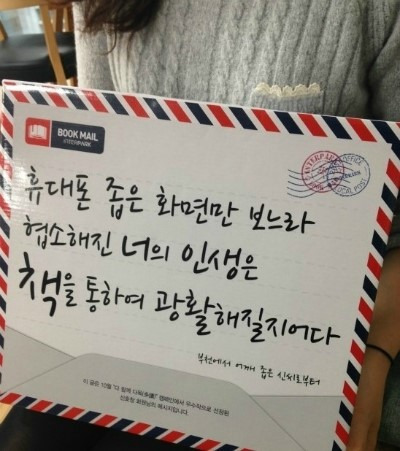 BOOK MAIL
INTERPARK
휴대폰 좁은 화면만 보느라
협소해진 너의 인생은
책을 통하여 광활해질지어다
부천에서 어깨 좁은 신씨로부터
이 글은 10월 "다 함께 다독(多讀)" 캠페인에서 우수작으로 선정된
회원님의 메시지입니다.